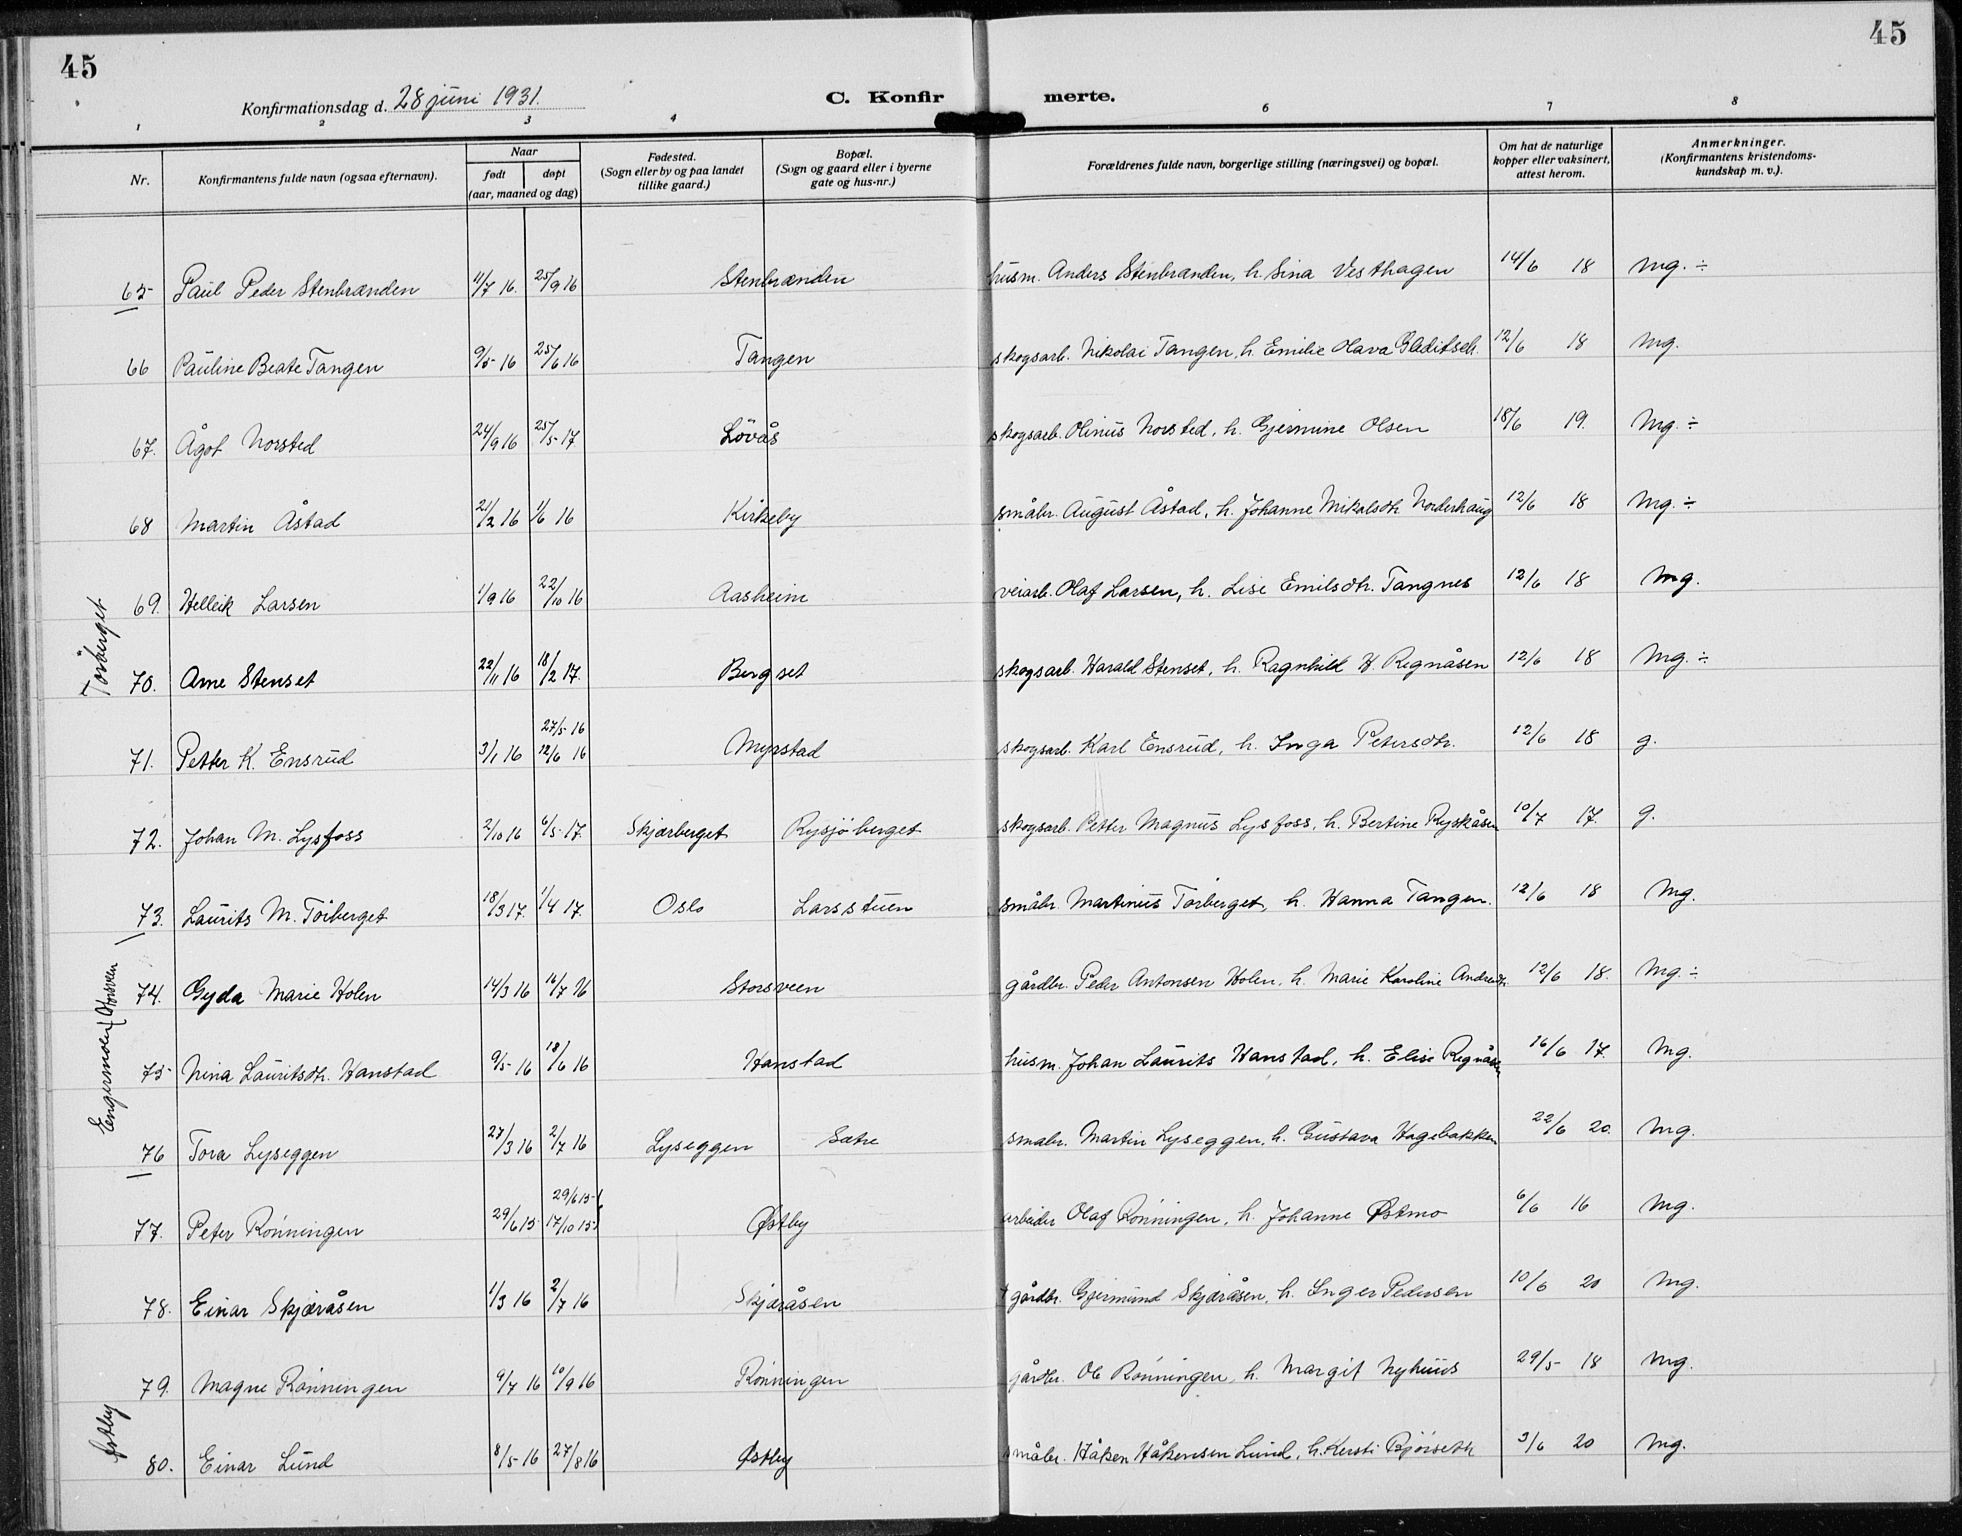 45
45
Konfirmationsdag d. 28 juni 1931.
C. Konfir merte.
1 2 3 4 6 7 8
Nr. Konfirmantens fulde navn (ogsaa efternavn). Naar født døpt (aar, maaned og dag) Fødested. (Sogn eller by og paa landet tillike gaard.) Bopæl. (Sogn og gaard eller i byerne gate og hus-nr.) Forældrenes fulde navn, borgerlige stilling (næringsvei) og bopæl. Om hat de naturlige kopper eller vaksinert, attest herom. Anmerkninger. (Konfirmantens kristendoms-kundskap m. v.).
65 Paul Peder Stenbrænden 11/7 16. 25/9 16 Stenbrænden husm. Anders Stenbrænden, h. Sina Vesthagen 14/6 18 Mg. ÷
66 Pauline Beate Tangen 9/5 16 25/6 16 Tangen skogsarb. Nikolai Tangen, h. Emilie Olava Gladitsch. 12/6 18 Mg.
67. Ågot Norsted 24/9 16 25/5 17 Løvås skogsarb. Olinus Norsted, h. Gjermine Olsen 18/6 19. Mg. ÷
68 Martin Åstad 21/2 16 1/6 16 Kirkeby småbr. August Åstad, h. Johanne Mikalsdtr Norderhaug 12/6 18 Mg. ÷
69. Helleik Larsen 1/9 16 22/10 16 Aasheim veiarb. Olaf Larsen, h. Lise Emilsdtr. Tangnes 12/6 18 Mg.
Törberget
70. Arne Stenset 22/11 16 18/2 17. Bergset skogsarb. Harald Stenset, h. Ragnhild H. Regnåsen 12/6 18 Mg. ÷
71. Petter K. Ensrud 3/1 16 27/5 16 12/6 16 Myrstad skogsarb. Karl Ensrud, h. Inga Petersdtr. 12/6 18 g.
72. Johan M. Lysfoss 2/10 16 6/5 17. Skjærberget Rysjöberget skogsarb. Petter Magnus Lysfoss, h. Bertine Ryskåsen 10/7 17. g.
73. Laurits M. Törberget 18/3 17. 1/4 17. Oslo Larsstuen småbr. Martinus Törberget, h. Hanna Tangen. 12/6 18 Mg.
74. Gyda Marie Holen 14/3 16 16/7 16 Storsveen gårdbr. Peder Antonsen Holen, h. Marie Karoline Andreasdtr. 12/6 18. Mg. ÷
75 Nina Lauritsdtr. Hanstad 9/5 16 18/6 16 Hanstad husm. Johan Laurits Hanstad, h. Elise Regnåsen 16/6 17. Mg.
Engermoen
76 Tora Lyseggen 27/3 16 2/7 16 Lyseggen Sætre småbr. Martin Lyseggen, h. Gustava Hagebakken 22/6 20. Mg.
77. Peter Rönningen 29/6 15 29/6 15 17/10 15 Østby arbeider Olaf Rönningen, h. Johanne Østmo 6/6 16 Mg.
78. Einar Skjæråsen 1/3 16 2/7 16 Skjæråsen gårdbr. Gjermund Skjæråsen, h. Inger Pedersen 10/6 20 Mg.
79. Magne Rönningen 9/7 16 10/9 16 Rönningen gårdbr. Ole Rönningen, h. Margit Nyhuus 29/5 18 Mg.
Østby
80. Einar Lund 8/5 16 27/8 16 Østby småbr. Håken Håkensen Lund, h. Kersti Bjørseth 3/6 20 Mg.